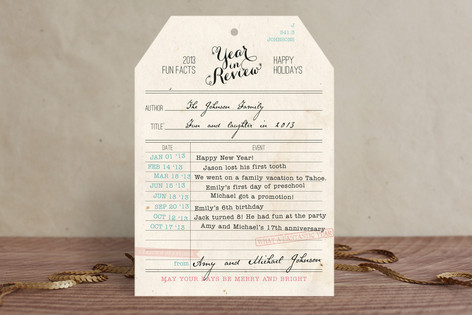 2013
FUN FACTS
Year in Review
HAPPY
HOLIDAYS
AUTHOR The Johnson Family
TITLE Fun and laughter in 2013
DATE EVENT
JAN 01 '13 Happy New Year!
FEB 14 '13 Jason lost his first tooth
MAR 18 '13 We went on a family vacation to Tahoe.
JUN 15 '13 Emily's first day of preschool
JUN 18 '13 Michael got a promotion!
SEP 20 '13 Emily's 6th birthday
OCT 12 '13 Jack turned 8! He had fun at the party
OCT 17 '13 Amy and Michael's 17th anniversary
from Amy and Michael Johnson
MAY YOUR DAYS BE MERRY AND BRIGHT